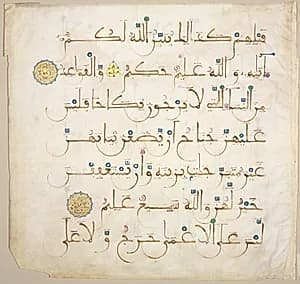 قبلهم كذلك يبين الله لكم
ءايته والله عليم حكيم والقواعد
من النسا التي لا يرجون نكاحا فليس
عليهن جناح ان يضعن ثيابهن
غير متبرجت بزينة وان يستعففن
خير لهن والله سميع عليم
ليس على الاعمى حرج ولا على